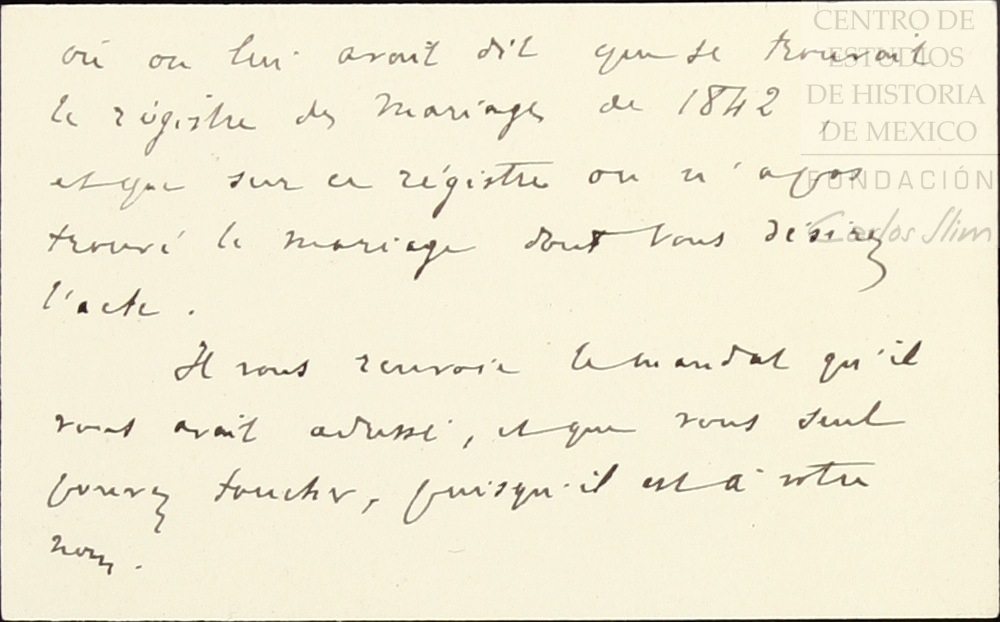 où on lui avait dit que se trouvait
le régistre des mariages de 1842,
et que sur ce régistre on n'a pas
trouvé le mariage dont vous désirez
l'acte.
Il vous renvoie le mandat qu'il
vous avait adressé, et que vous seul
pouvez toucher, puisqu'il est à votre
nom.
CENTRO DE
ESTUDIOS
DE HISTORIA
DE MEXICO
FUNDACIÓN
Carlos Slim